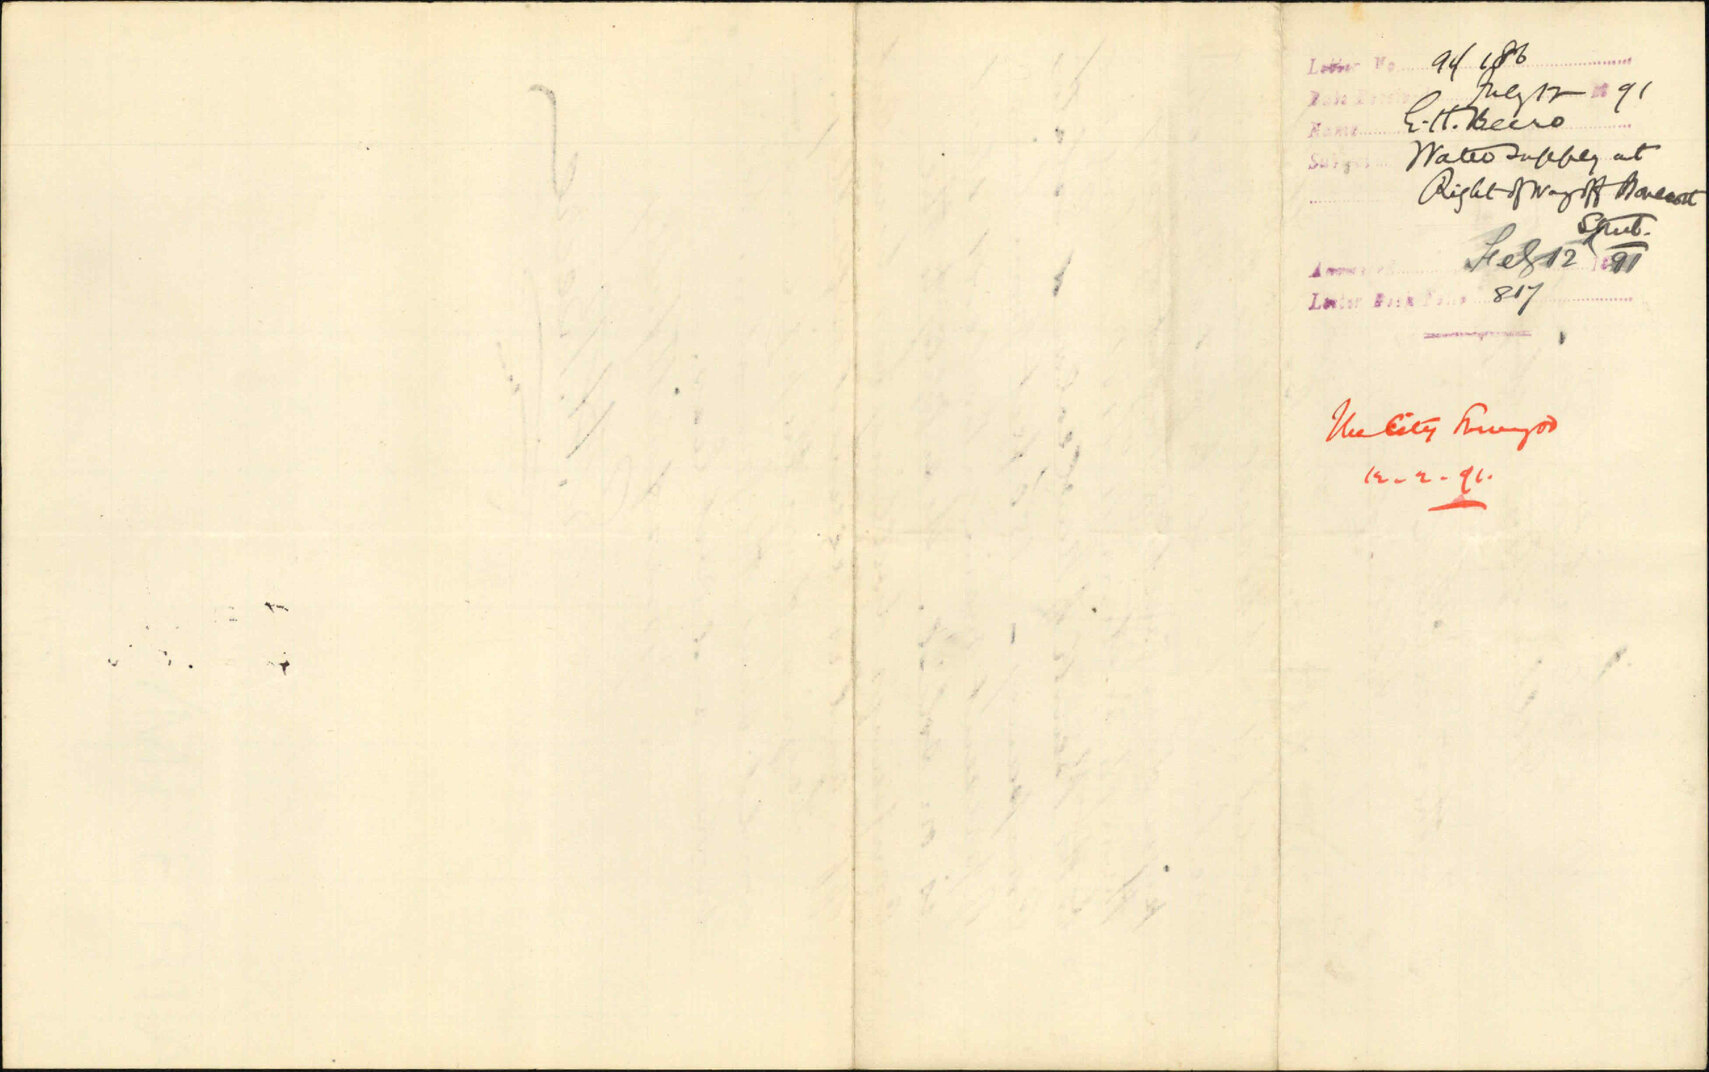 Letter No 94/186
Date Received July 12 18 91
Name E. H.
Subject Water supply at
Right of Way off
Street.
Answered Feby 12 1891
Letter Book Folio 817
The City Surveyor
12-2-91.